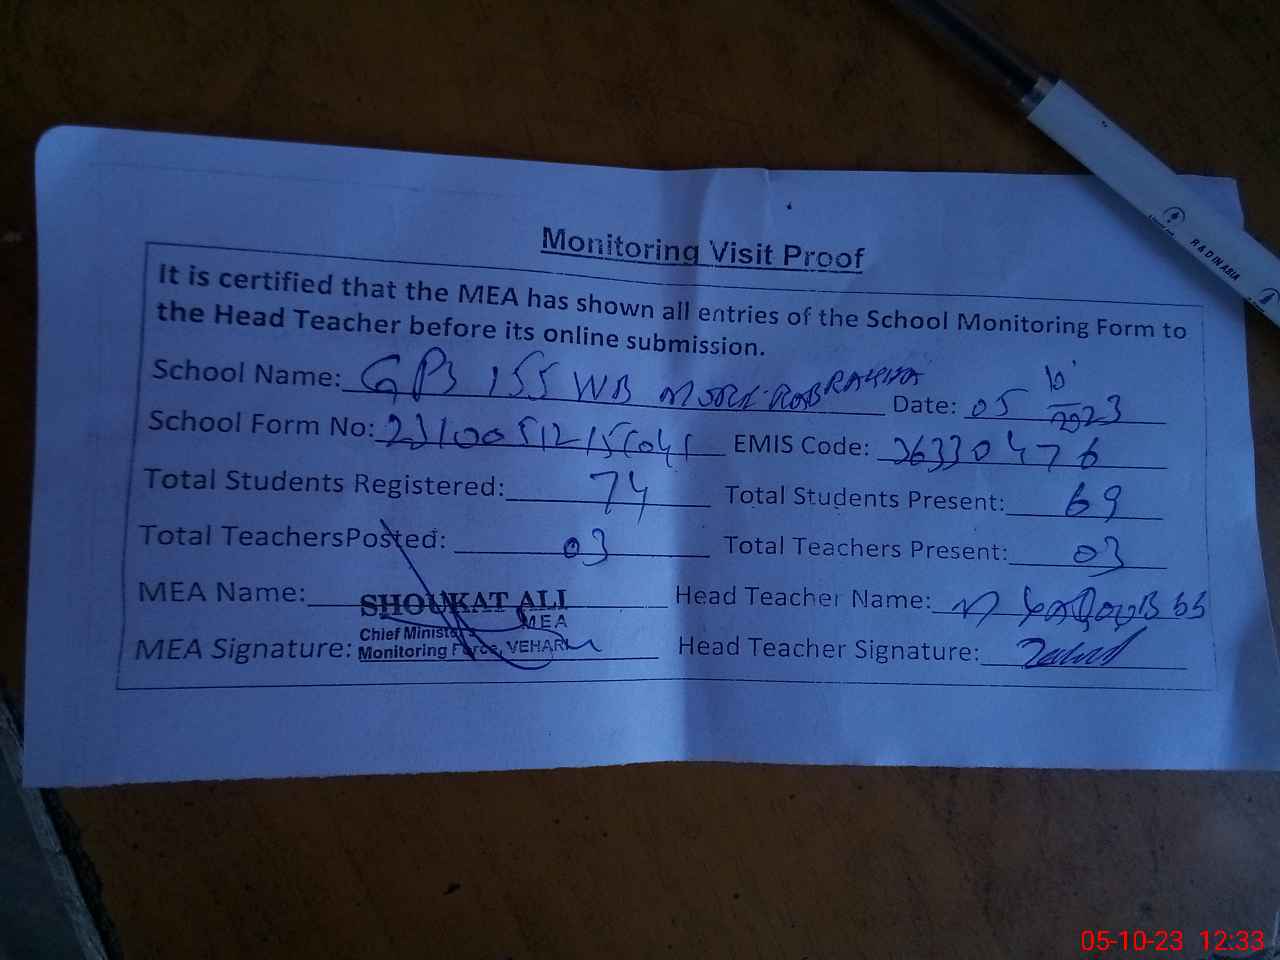 Monitoring Visit Proof
It is certified that the MEA has shown all entries of the School Monitoring Form to
the Head Teacher before its online submission.
School Name: GPS 155 WB Date: 05 10 2023
School Form No: EMIS Code: 36330476
Total Students Registered: 74 Total Students Present: 69
Total TeachersPosted: 03 Total Teachers Present: 03
MEA Name: SHOUKAT ALI Head Teacher Name: M
MEA
Chief Minister's
MEA Signature: Monitoring Force, VEHARI Head Teacher Signature:
R & D IN ASIA
05-10-23 12:33